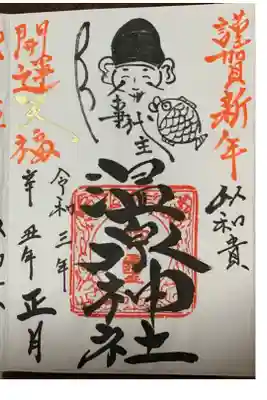 謹賀新年
以和貴
事代主
温泉神社
令和三年
辛丑年 正月
開運
福